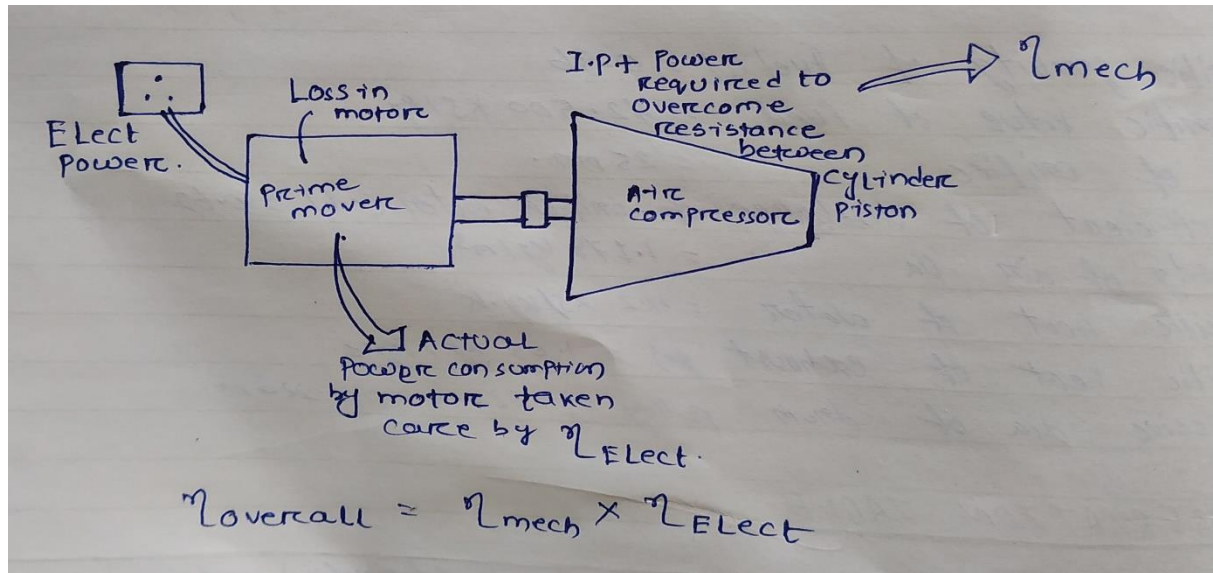 Elect
Power.
Loss in
motor
Prime
mover
I.P + Power
required to
overcome
resistance
between
cylinder
piston
ηmech
Air
compressor
Actual
Power consumption
by motor taken
care by ηElect.
ηoverall = ηmech × ηElect